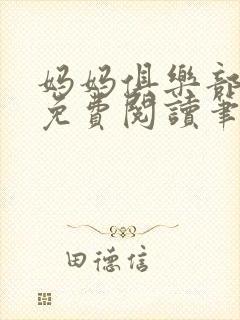 妈妈俱樂部
免費閱讀筆
田德信